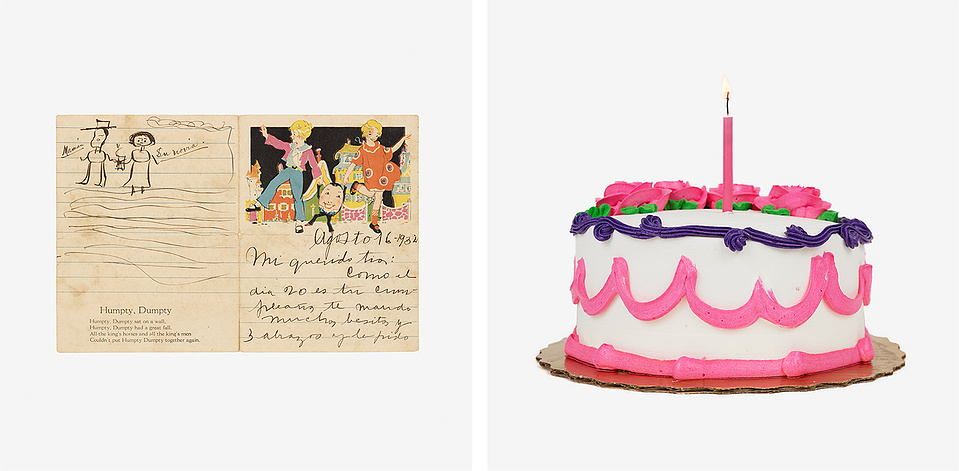 Su novia.
Humpty, Dumpty
Humpty, Dumpty sat on a wall,
Humpty, Dumpty had a great fall,
All the king's horses and all the king's men
Couldn't put Humpty Dumpty together again.
Agosto 16-1932
Mi querido tio:
Como el
dia 20 es tu cum-
pleaños te mando
muchos besitos y
3 abrazos y te pido